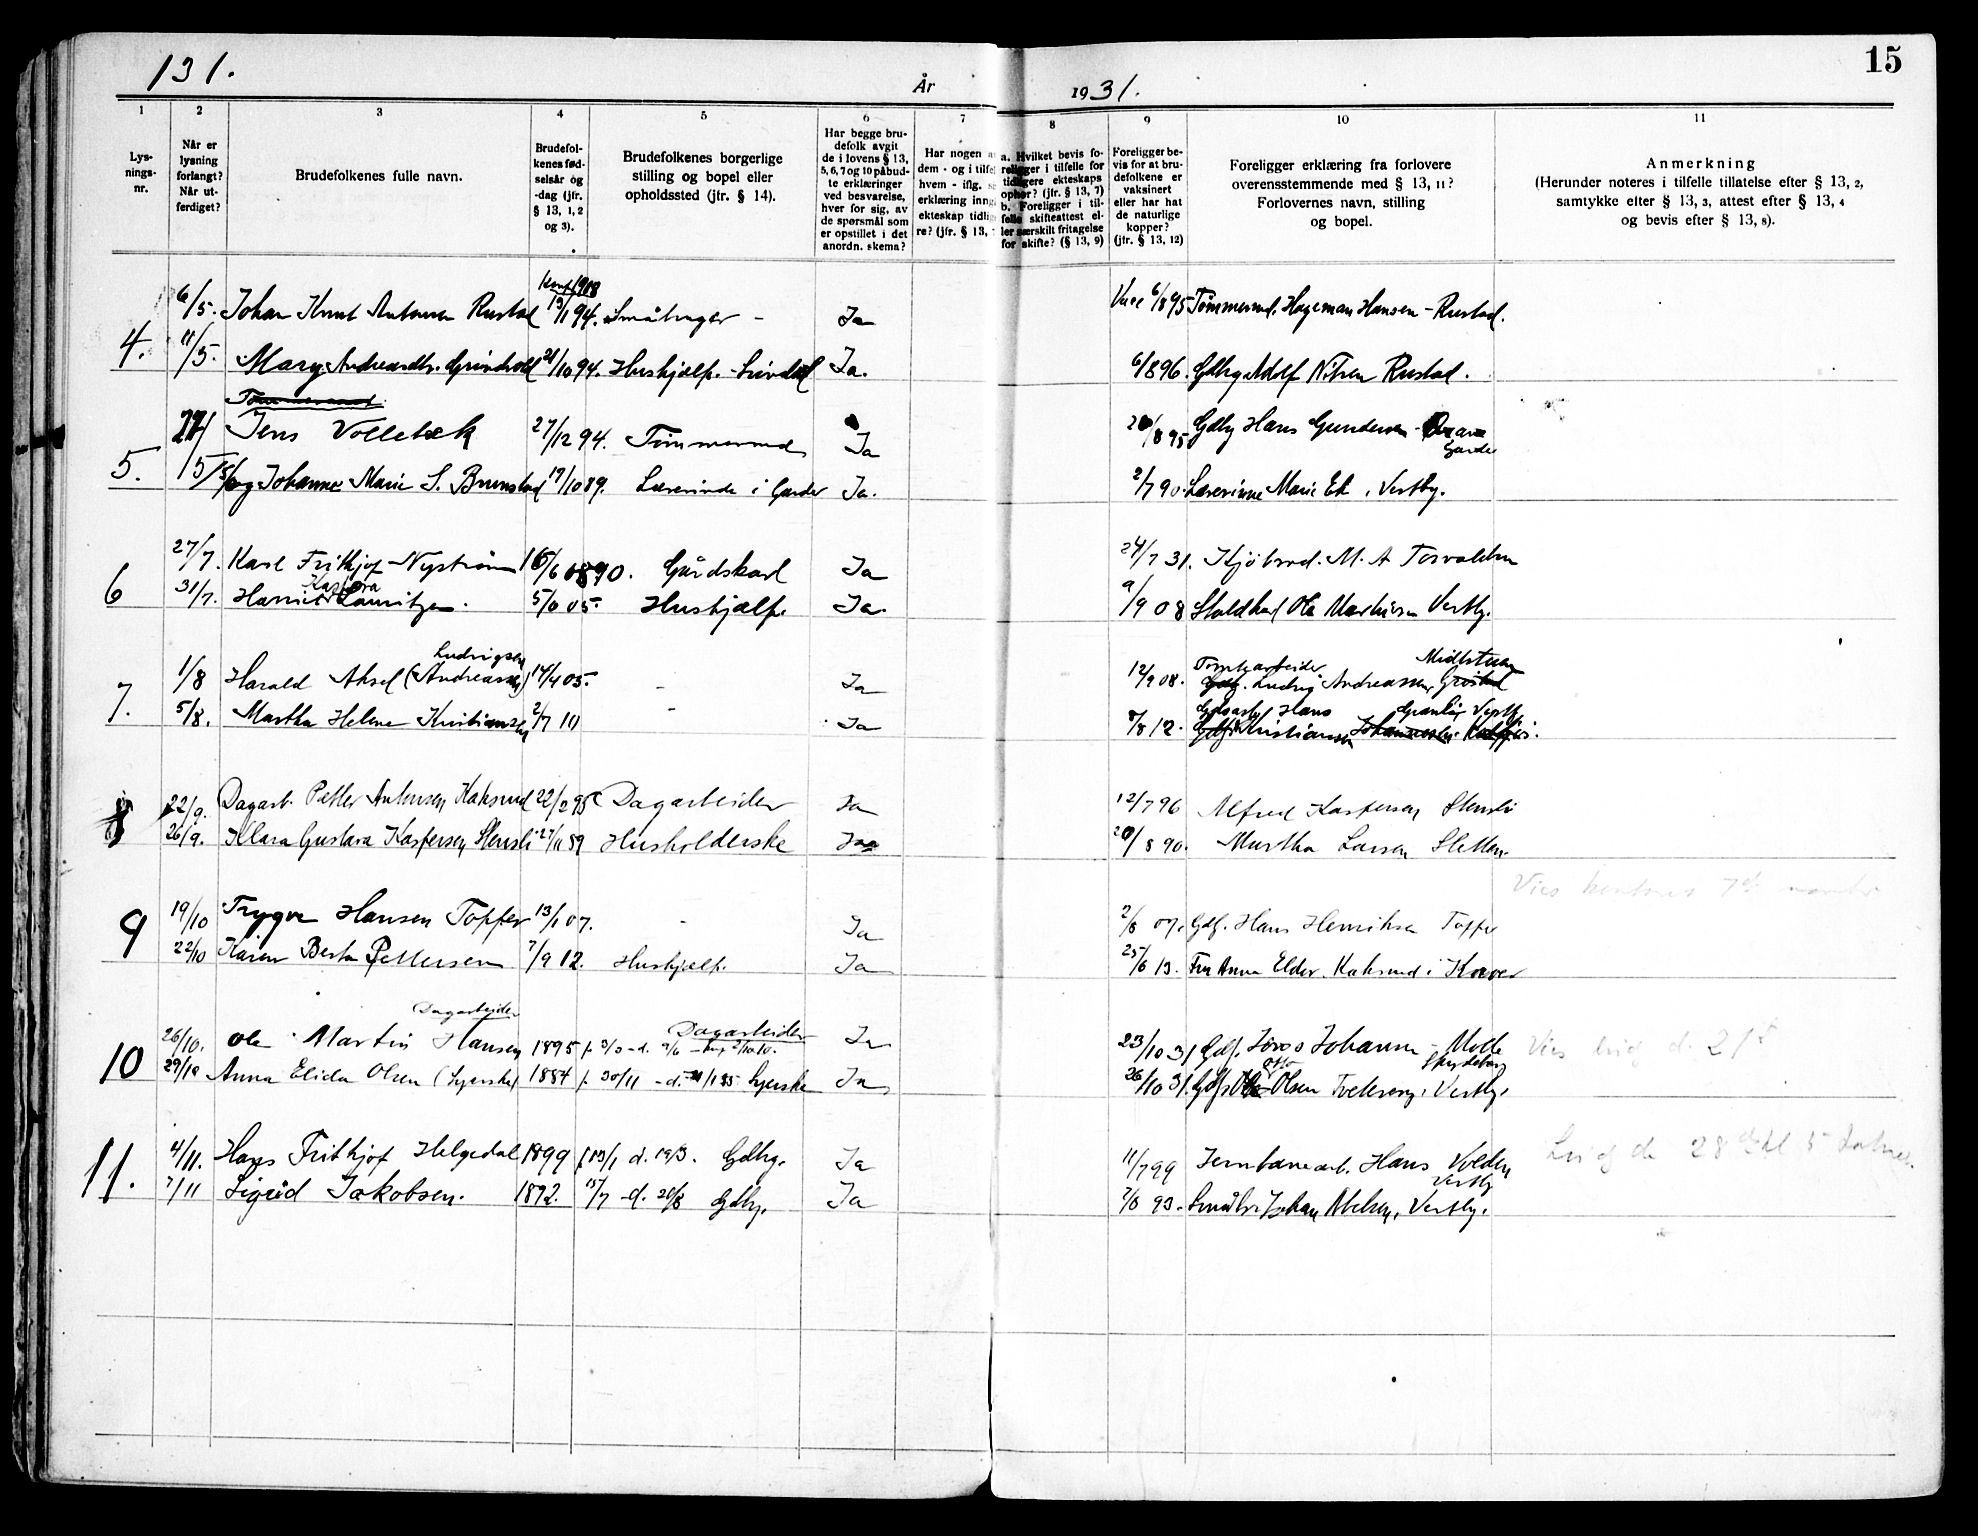 131.
År
1931.
15
1 2 3 4 5 6 7 8 9 10 11
Lys-
nings-
nr.
Når er
lysning
forlangt?
Når ut-
ferdiget?
Brudefolkenes fulle navn.
Brudefol-
kenes fød-
selsår og
-dag (jfr.
§ 13, 1, 2
og 3).
Brudefolkenes borgerlige
stilling og bopel eller
opholdssted (jfr. § 14).
Har begge bru-
defolk avgit
de i lovens § 13,
5, 6, 7 og 10 påbud-
te erklæringer
ved besvarelse,
hver for sig, av
de spørsmål som
er opstillet i det
anordn. skema?
Har nogen a
dem - og i tilfel
hvem - iflg. s
erklæring inng
ekteskap tidlig
re? (jfr. § 13,
a. Hvilket bevis fo-
religger i tilfelle for
tidligere ekteskaps
ophør? (jfr. § 13, 7)
b. Foreligger i til-
felle skifteattest el-
ler særskilt fritagelse
for skifte? (§ 13, 9)
Foreligger be-
vis for at bru-
defolkene er
vaksinert
eller har hat
de naturlige
kopper?
(jfr. § 13, 12)
Foreligger erklæring fra forlovere
overensstemmende med § 13, 11?
Forlovernes navn, stilling
og bopel.
Anmerkning
(Herunder noteres i tilfelle tillatelse efter § 13, 2,
samtykke efter § 13, 3, attest efter § 13, 4
og bevis efter § 13, 8).
6/5. Johan Knut Antonsen Rustad 13/1 94. Småbruger - Ja 6/8 95 Tømmermd. Hageman Hansen - Rustad.
4. 11/5. Mary Andreasdtr. Grindvold 21/10 94. Hushjælp. Ja. 6/8 96. Gdbr Adolf Nilsen Rustad.
Jens Vollebæk 27/12 94. Tømmermd Ja 20/8 95 Gdbr Hans Gundersen
Garder
5. 15/5 og Johanne Marie S. Brunstad 19/10 89. Lærerinde i Garder Ja. 2/7 90. Lærerinne Marie Ek, Vestby.
27/7. Karl Frithjof Nystrøm Gårdskarl Ja 24/7 31. M. A Torvaldsen
Kaspara
6 31/7. Harriet Lauritzen. 5/6 05. Hushjælp. Ja. 9/9 08 Staldkarl Ole Martinsen Vestby.
Ludvigsen Tomtearbeider Midtstuen
1/8 Harald Aksel (Andreassen) 14/4 05. - Ja 12/9 08. Gdbr. Ludvig Andreassen,
Hans Granli, Vestby
7. 5/8. Martha Helene Kristiansen 2/7 11 - Ja 8/8 12. Kristiansen
22/9. Dagarb. Petter Antonsen Kaksrud 22/2 95 Dagarbeider Ja 12/7 96 Alfred Kaspersen Stensli
8 26/9. Klara Gustava Kaspersen Stensli 27/11 89 Husholderske Ja 20/8 90. Martha Larsen Sletten.
19/10 Trygve Hansen Topper 13/1 07. - Ja 2/8 07. Gdb. Hans Henriksen Topper
9 22/10 Karen Berta Pettersen 7/9 12. Hushjælp. Ja 25/6 13. Fru Anna Elder. Kaksrud i Kroer
Dagarbeider Dagarbeider
26/10. Ole Martin Hansen 1895 f. 3/3 - d. 9/6 - Ja 23/10 31 Gdb. Johansen - Molle
Skiptvet
10 29/10 Anna Elida Olsen (Syerske) 1884 f. 30/11 - d. Syerske Ja 26/10 31. Gdb Olsen Tveteroy, Vestby.
4/11. Hans Frithjof Helgedal 1899 f 13/1 d. 19/3. Gdbr. Ja 11/7 99 Jernbanearb. Hans Volden
Vestby
11. 7/11 Sigrid Jakobsen. 1892. 15/7 - d. 20/8 Gdbr. Ja 7/8 93. Småbr. Johan Abelsen, Vestby.